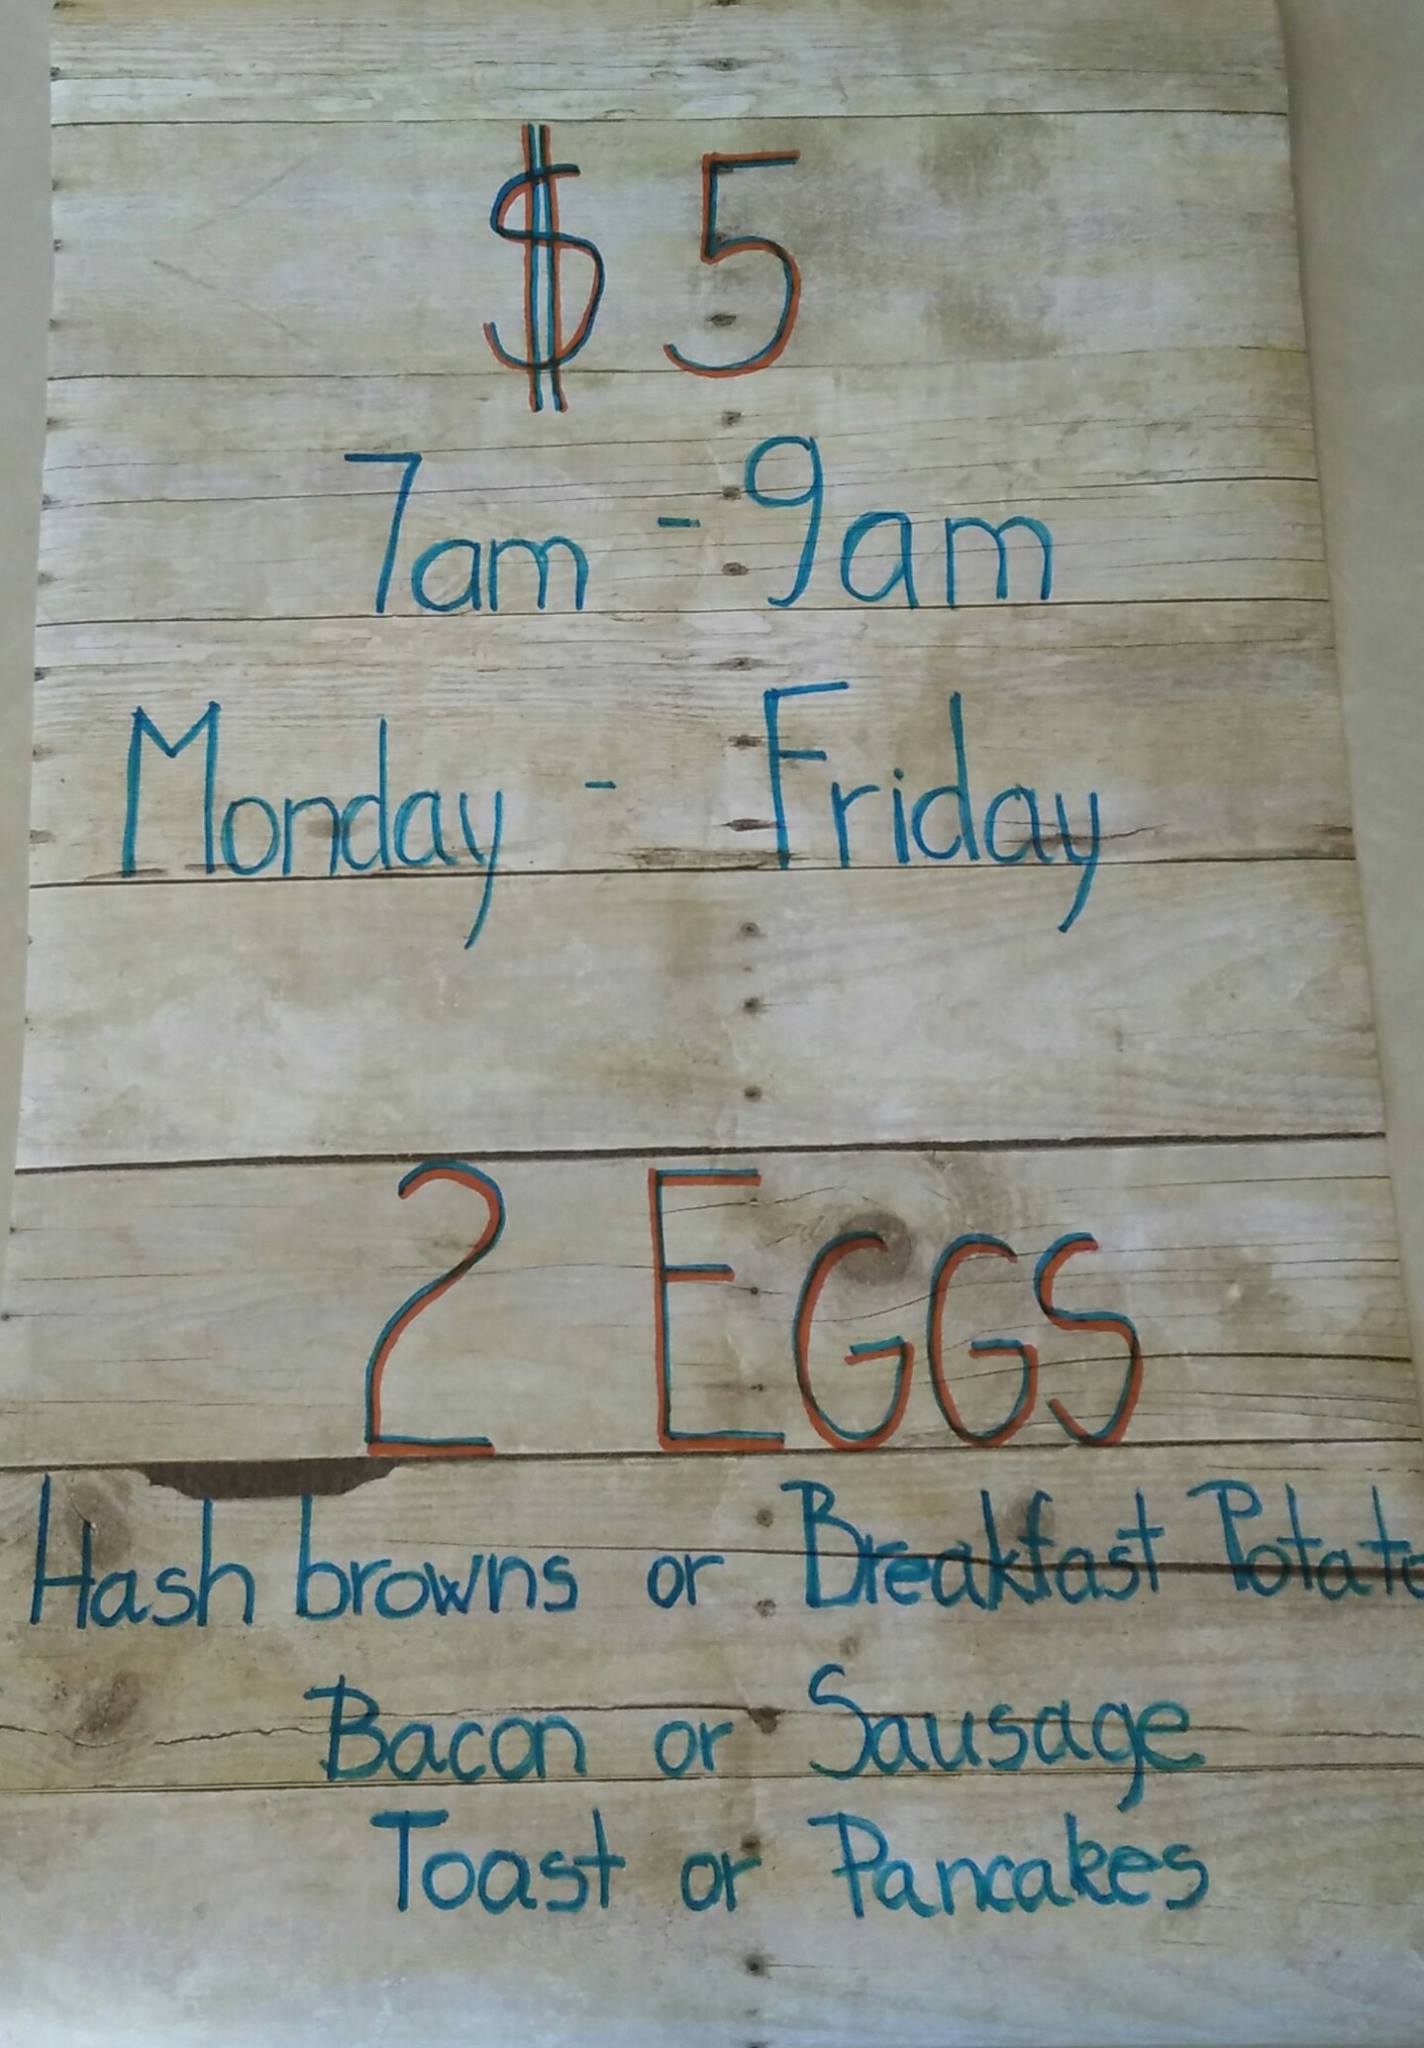 $5
7am - 9am
Monday - Friday
2 EGGS
Hash browns or Breakfast Potato
Bacon or Sausage
Toast or Pancakes